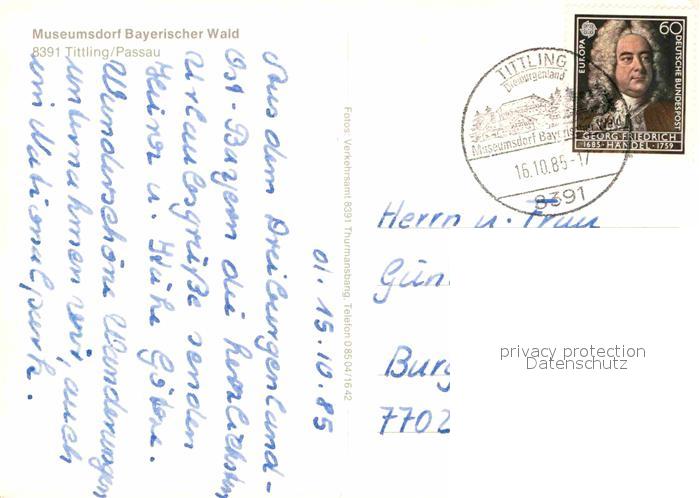 Museumsdorf Bayerischer Wald
8391 Tittling/Passau
d. 15.10.85
Aus dem Dreiburgenland-
Ost-Bayern die herzlichsten
Urlaubsgrüße senden
Heinz u. Käthe
Wunderschöne Wanderungen
unternahmen wir, auch
im Nationalpark.
Fotos: Verkehrsamt 8391 Thurmansbang, Telefon 08504/1642
TITTLING
Dreiburgenland
Museumsdorf Bayerischer Wald
16.10.85-17
8391
EUROPA
60
DEUTSCHE BUNDESPOST
GEORG FRIEDRICH
1685 · HÄNDEL · 1759
Herrn u. Frau
Gün
Burg
7702
privacy protection
Datenschutz